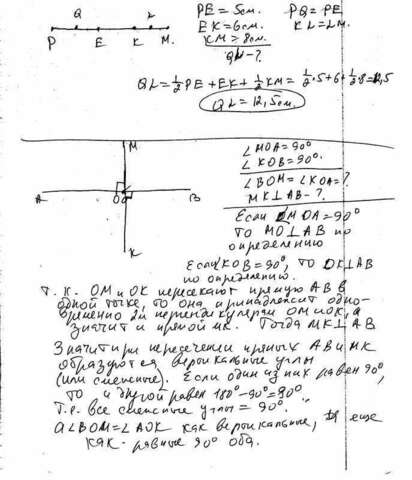 PE = 5см. PQ = PE
EK = 6см. KL = LM.
KM = 8см.
QL - ?
Q L
P E K M.
QL = ½PE + EK + ½KM = ½·5+6+½·8=12,5
QL = 12,5см.
M
∠MOA = 90°
∠KOB = 90°.
∠BOM = ∠KOA = ?
MK⊥AB - ?
A O B
K
Если ∠MOA = 90°
то MO⊥AB по
определению
Если ∠KOB = 90°, то OK⊥AB
по определению.
Т.к. OM и OK пересекают прямую AB в
одной точке, то она принадлежит одно-
временно 2м перпендикулярам OM и OK, а
значит и прямой MK. Тогда MK⊥AB
Значит при пересечении прямых AB и MK
образуются вертикальные углы
(или смежные). Если один из них равен 90°,
то и другой равен 180°-90°=90°.
Т.е. все смежные углы = 90°.
А ∠BOM = ∠AOK как вертикальные, и еще
как равные 90° оба.